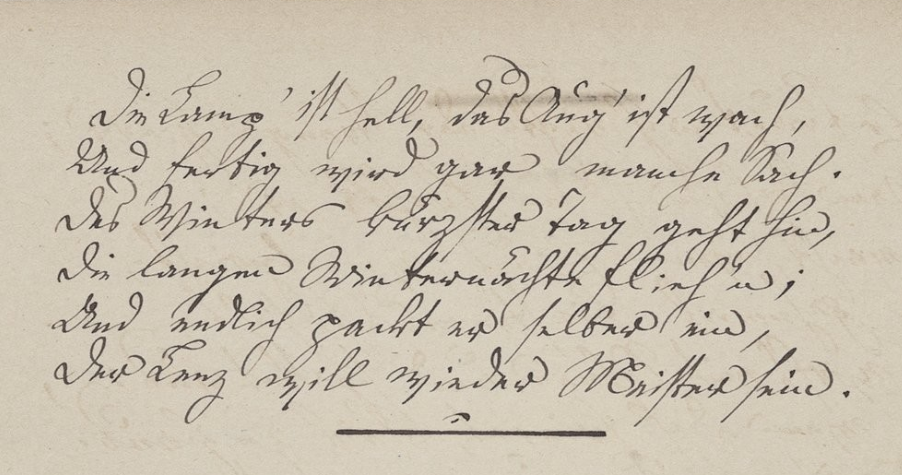 Die Lamp' ist hell, das Aug' ist wach,
Und fertig wird gar manche Sach.
Des Winters kürzster Tag geht hin,
Die langen Winternächte flieh'n;
Und endlich packt er selber ein,
Der Lenz will wieder Meister sein.